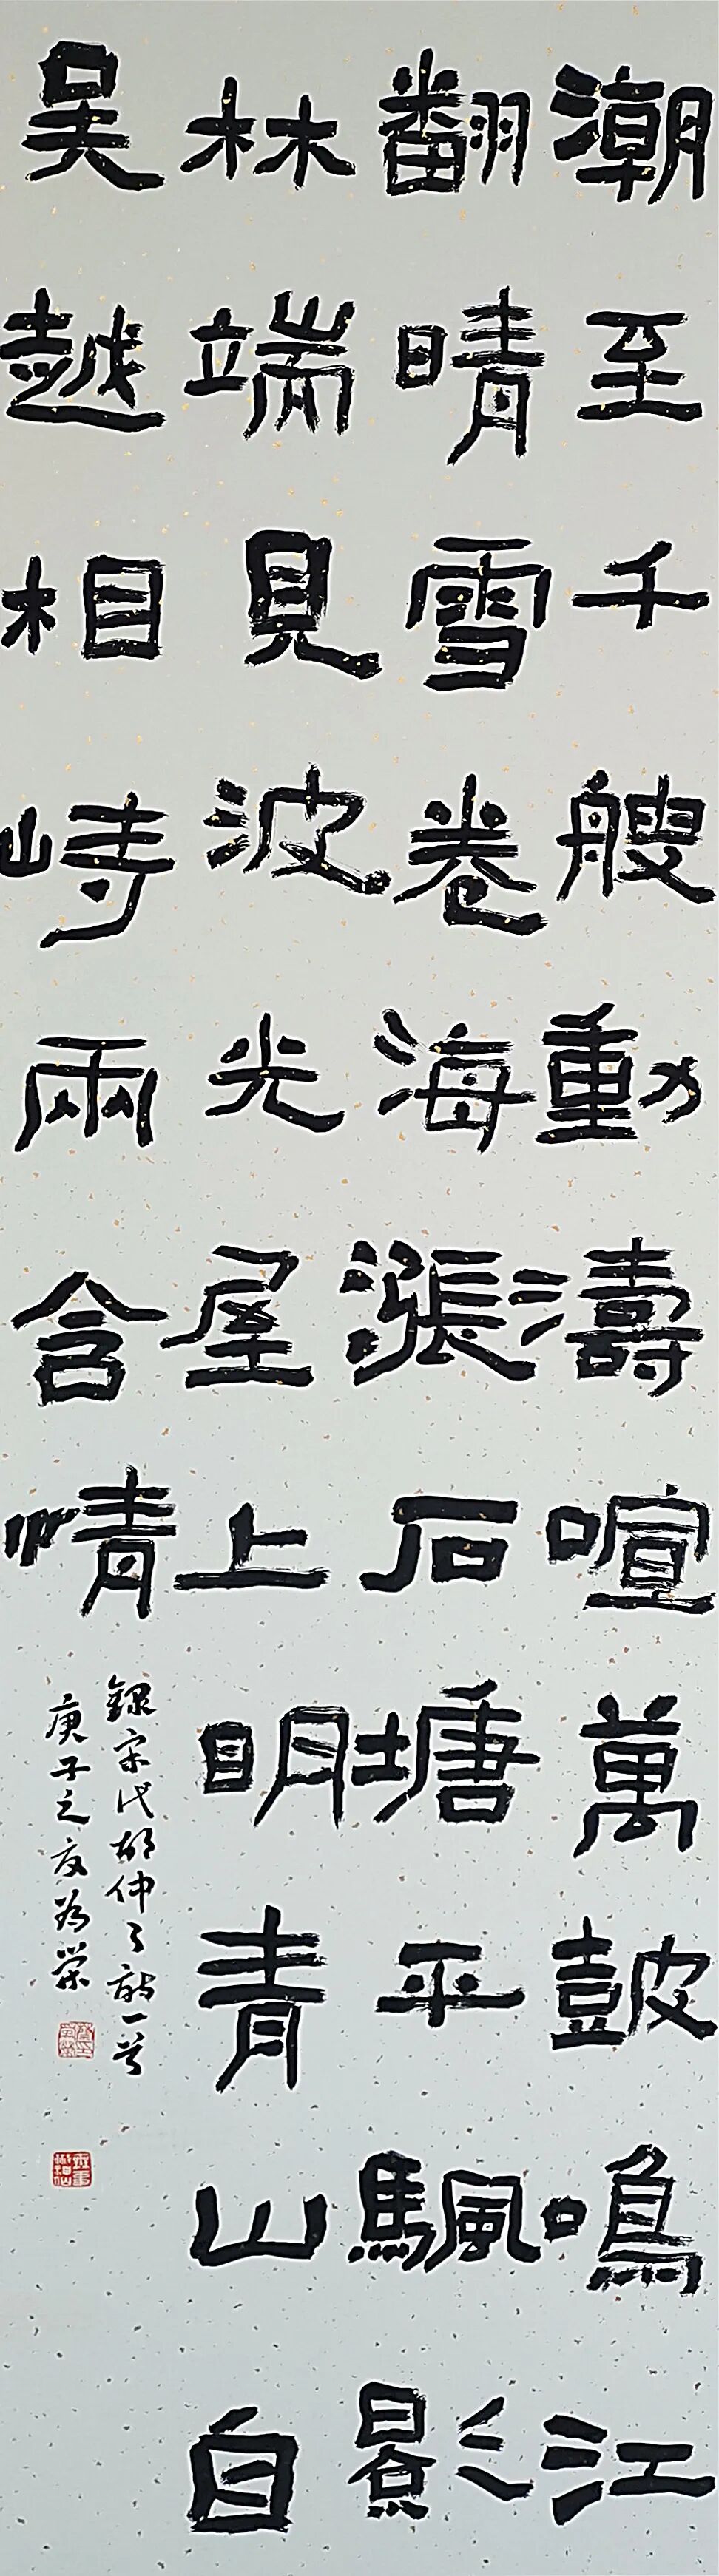 潮至千艘動濤喧萬皷鳴江
翻晴雪卷海漲石塘平颿影
林端見波光屋上明青山自
吳越相峙兩含情
錄宋代胡仲弓詩一首
庚子之夏為榮